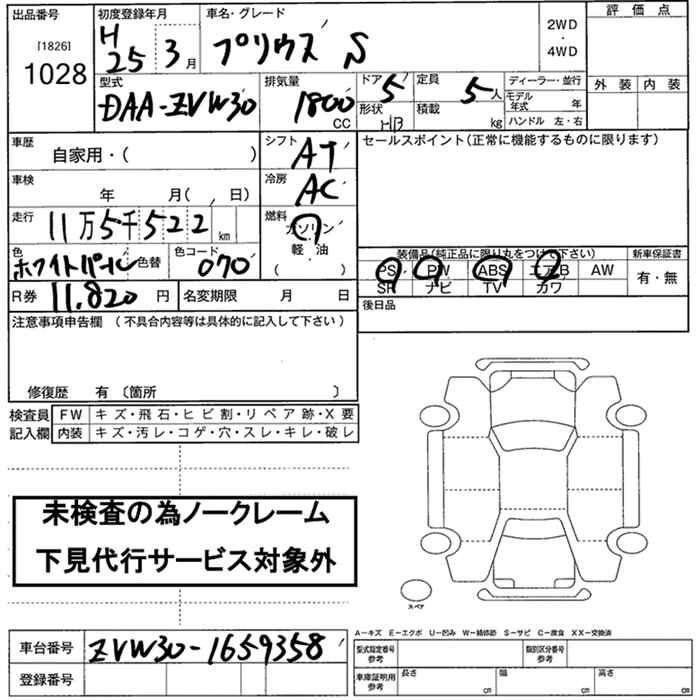 出品番号 初度登録年月 車名・グレード 評価点
[1826]
1028
H 25 3月 プリウス S 2WD・4WD
型式 排気量 ドア 定員 ディーラー・並行 外装 内装
DAA-ZVW30 1800 CC 5 5人 モデル年式 年
形状 HB 積載 kg ハンドル 左・右
車歴 シフト セールスポイント(正常に機能するものに限ります)
自家用・( ) AT
車検 冷房
年 月( 日) AC
走行 燃料
11万5千522km ガソリン
軽・油
( )
色 色替 色コード 装備品(純正品に限り丸をつけて下さい) 新車保証書
ホワイトパール 070 PS PW ABS エアB AW 有・無
SR ナビ TV カワ
R券 11,820円 名変期限 月 日 後日品
注意事項申告欄 (不具合内容等は具体的に記入して下さい)
修復歴 有 〔箇所 〕
検査員 FW キズ・飛石・ヒビ割・リペア跡・X要
記入欄 内装 キズ・汚レ・コゲ・穴・スレ・キレ・破レ
未検査の為ノークレーム
下見代行サービス対象外
スペア
A−キズ E−エクボ U−凹み W−補修跡 S−サビ C−腐食 XX−交換済
車台番号 ZVW30-1659358 型式指定番号 参考 類別区分番号 参考
登録番号 車庫証明用 参考 長さ cm 幅 cm 高さ cm